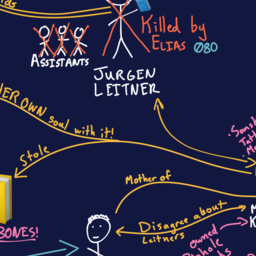 Killed by
ELIAS 080
ASSISTANTS
JURGEN
LEITNER
ER OWN soul with it!
Stole
Mother of
Disagree about
Leitners
BONES!
owned